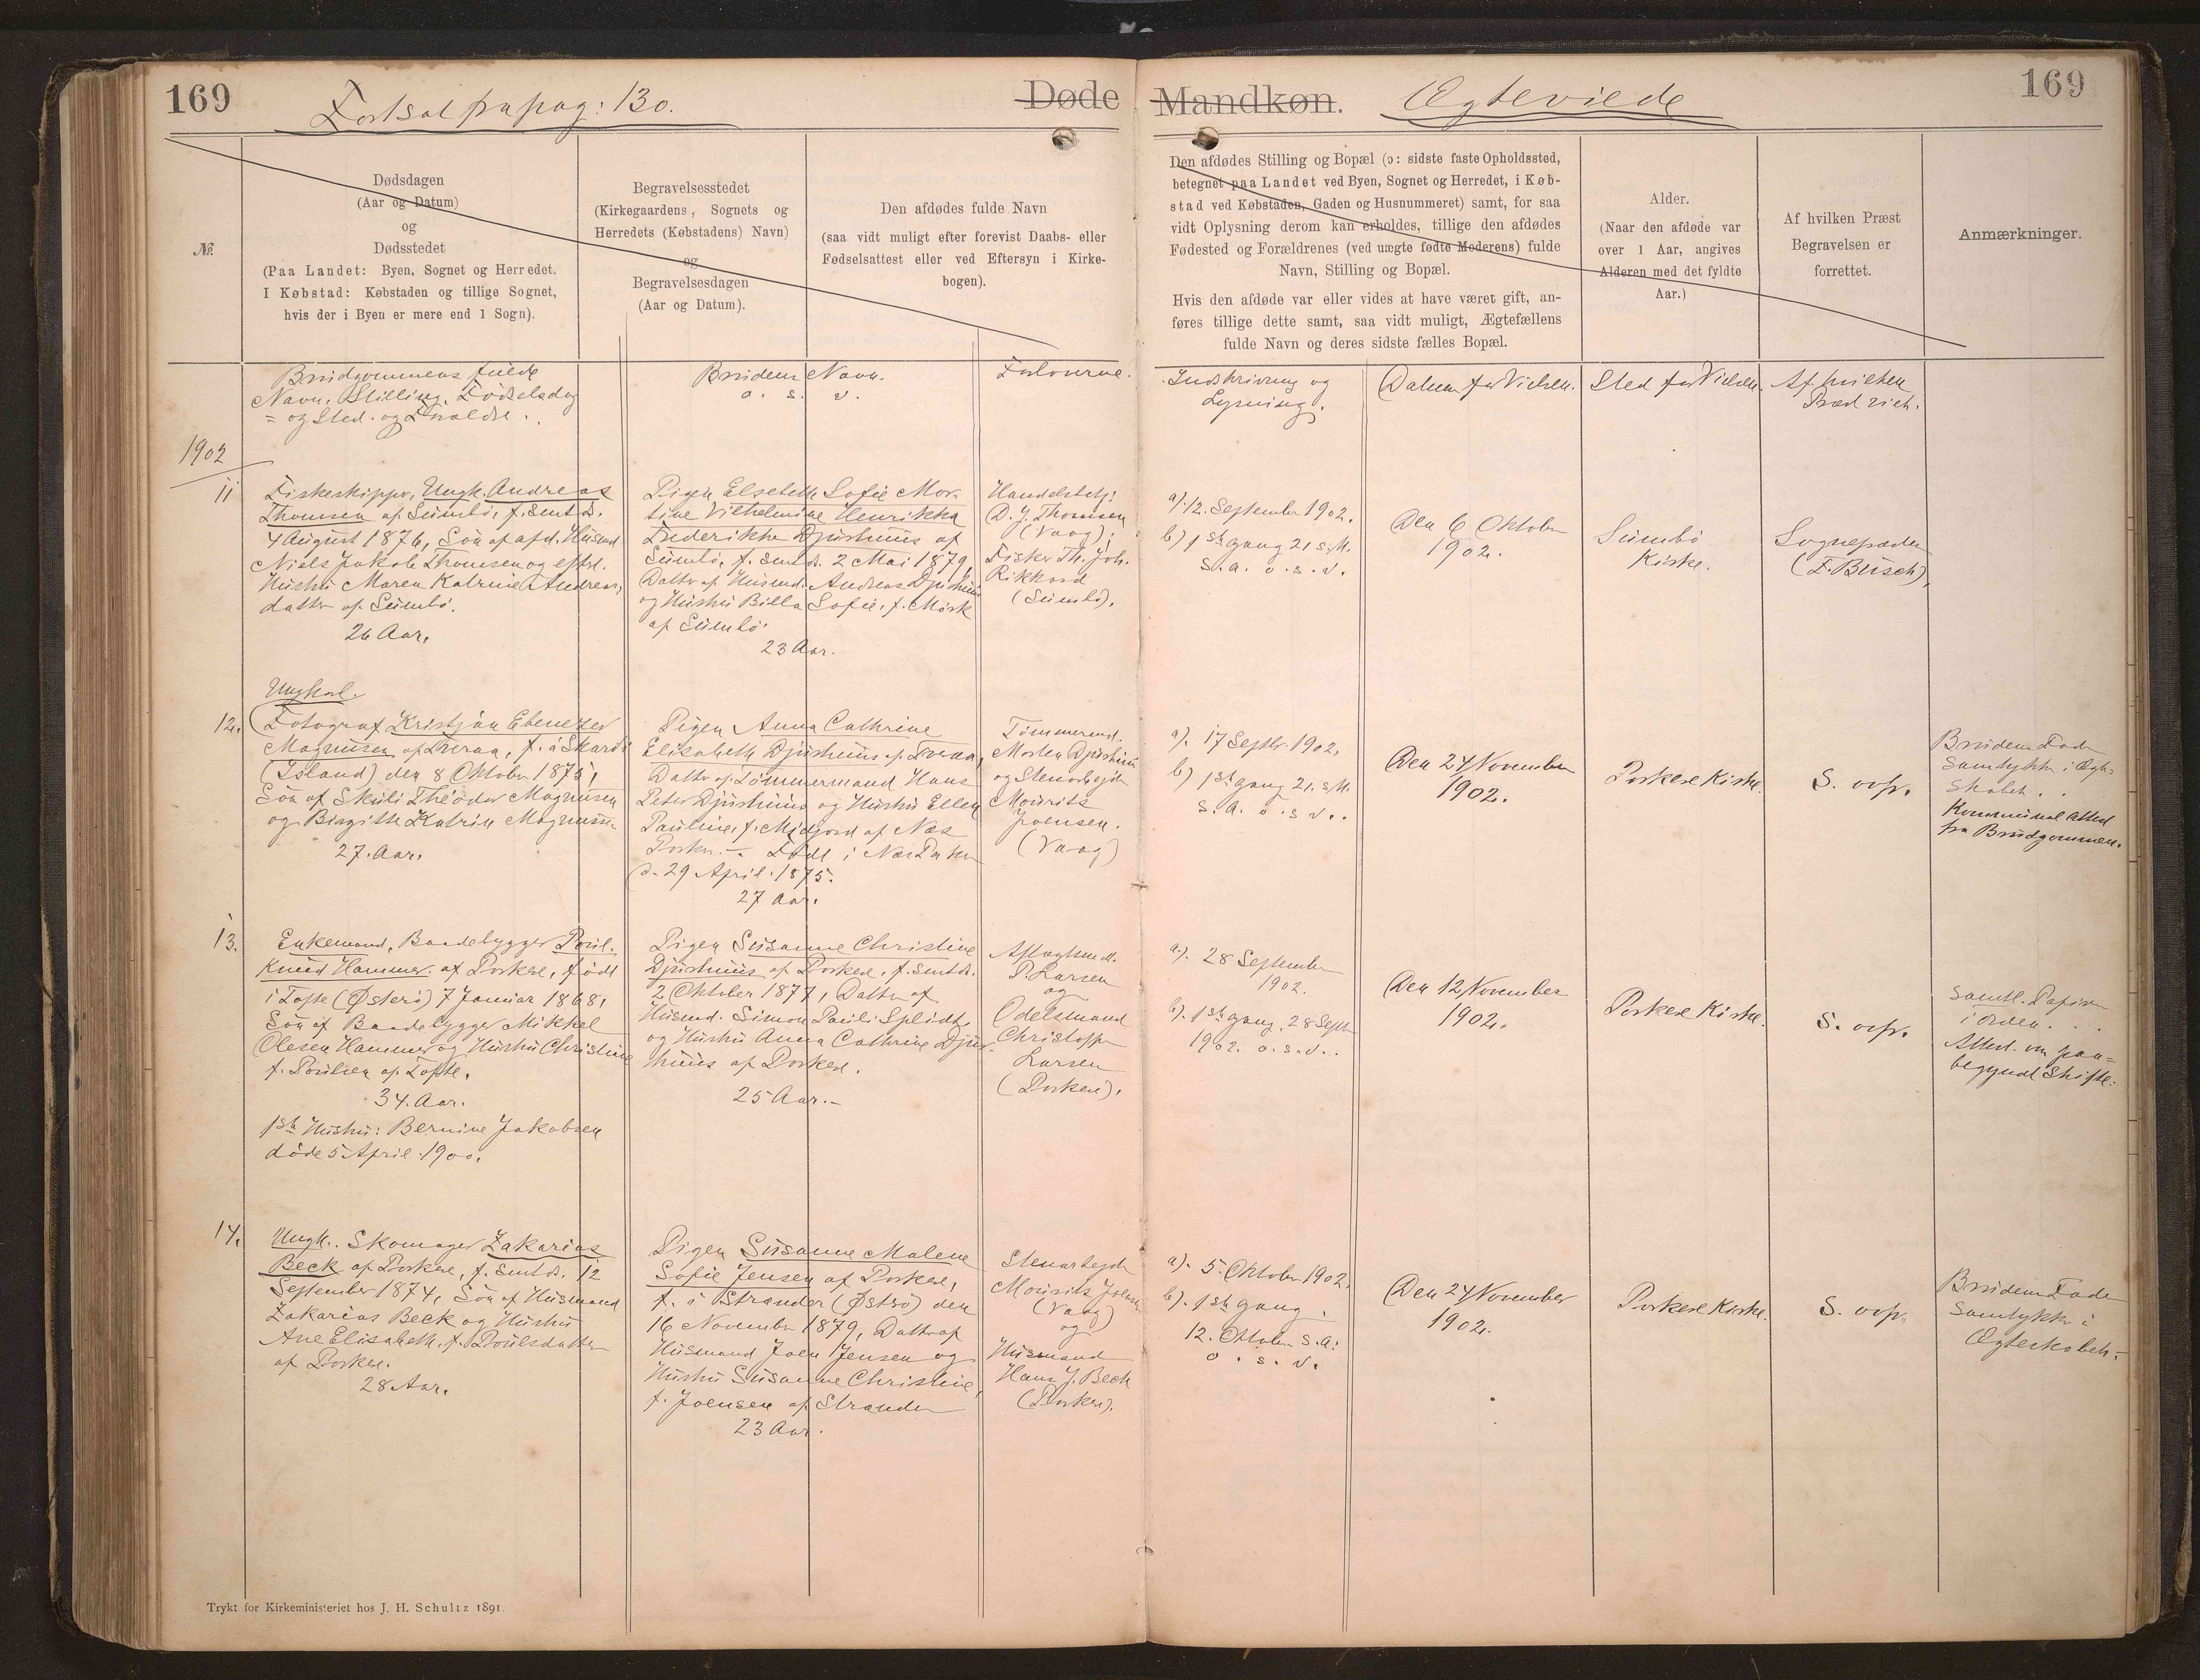 169
Fortsat fra pag: 130.
Døde
Mandkøn.
Ægteviede
169
№
Dødsdagen
(Aar og Datum)
og
Dødsstedet
(Paa Landet: Byen, Sognet og Herredet.
I Købstad: Købstaden og tillige Sognet,
hvis der i Byen er mere end 1 Sogn).
Begravelsesstedet
(Kirkegaardens, Sognets og
Herredets (Købstadens) Navn)
og
Begravelsesdagen
(Aar og Datum).
Den afdødes fulde Navn
(saa vidt muligt efter forevist Daabs- eller
Fødselsattest eller ved Eftersyn i Kirke-
bogen).
Den afdødes Stilling og Bopæl (ɔ: sidste faste Opholdssted,
betegnet paa Landet ved Byen, Sognet og Herredet, i Køb-
stad ved Købstaden, Gaden og Husnummeret) samt, for saa
vidt Oplysning derom kan erholdes, tillige den afdødes
Fødested og Forældrenes (ved uægte fødte Moderens) fulde
Navn, Stilling og Bopæl.
Hvis den afdøde var eller vides at have været gift, an-
føres tillige dette samt, saa vidt muligt, Ægtefællens
fulde Navn og deres sidste fælles Bopæl.
Alder.
(Naar den afdøde var
over 1 Aar, angives
Alderen med det fyldte
Aar.)
Af hvilken Præst
Begravelsen er
forrettet.
Anmærkninger.
Brudgommens fulde
Navn, Stilling, Fødselsdag
= og Sted. og Foraldre.
Brudens Navn.
o. s. v.
Forloverne.
Indskrivning og
Lysning.
Datum for Vielsen.
Sted for Vielsen.
Af hvilken
Præst viet.
1902
11
Fiskeskipper, Ungk. Andreas
Thomsen af Sumbö, f. smstds.
4 August 1876, Søn af afd. Husmd
Niels Jakob Thomsen og efterl.
Hustru Maren Katrine Andreas-
datter af Sumbö.
26 Aar.
Pigen Elsebeth Sofie Mor-
tine Vilhelmine Henrikka
Frederikke Djurhuus af
Sumbö, f. smstds. 2 Mai 1879,
Datter af Husmd. Andreas Djurhuus
og Hustru Billa Sofie, f. Mørk
af Sumbö.
23 Aar.
Handelsbetj.
D. J. Thomsen
(Vaag);
Fisker Th. Joh.
Rikkard
(Sumbö).
a) 12. September 1902.
b) 1ste gang 21 s. M.
s. A. o. s. v.
Den 6 Oktober
1902.
Sumbö
Kirke.
Sognepræsten
(F. Busch).
Ungkarl.
12.
Fotograf Kristjan Ebenezer
Magnusen af Tveraa, f. á Skardi
(Island) den 8 Oktober 1875,
Søn af Skúli Théodor Magnusen
og Birgitte Katrin Magnusen
27. Aar.
Pigen Anna Cathrine
Elisabeth Djurhuus af Tveraa,
Datter af Tömmermand Hans
Peter Djurhuus og Hustru Ellen
Pauline, f. Midjord af Næs
Porker. - Født i Næs Porker
d. 29 April 1875.
27 Aar.
Tømmermd.
Morten Djurhuus
og Stenarbejder
Mourits
Joensen.
(Vaag)
a). 17 Septbr. 1902.
b) 1ste gang 21. s. M.
s. A. o. s. v.
Den 24 November
1902.
Porkere Kirke.
S. ovf.
Brudens Fader
samtykker i Ægte-
skabet.
Kommunal Attest
fra Brudgommen.
13.
Enkemand, Baadebygger Poul
Knud Hammer af Porkere, født
i Tofte (Østerö) 7 Januar 1868,
Søn af Baadebygger Mikkel
Olesen Hammer og Hustru Christine
f. Poulsen af Tofte.
34. Aar.
1ste Hustru: Bernine Jakobsen
døde 5 April 1900.
Pigen Susanne Christine
Djurhuus af Porkere, f. smstds.
2 Oktober 1877, Datter af
Husmd. Simon Pauli Splidt
og Hustru Anna Cathrine Djur-
huus af Porkere.
25 Aar.-
Aftægtsmd.
P. Larsen
og
Odelsmand
Christoffer
Larsen
(Porkere).
a). 28 September
1902.
b). 1ste gang. 28 Septb
1902. o. s. v..
Den 12 November
1902.
Porkere Kirke.
S. ovf.
Samtl. Papirer
i Orden.
Attest. om paa-
begyndt Skifte.
14.
Ungk. Skomager Zakarias
Beck af Porkere, f. smstds. 12
September 1874, Søn af Husmand
Zakarias Beck og Hustru
Ane Elisabeth, f. Poulsdatter
af Porkere.
28 Aar.
Pigen Susanne Malene
Sofie Jensen af Porkere,
f. i Strander (Øströ) den
16 November 1879, Datter af
Husmand Joen Jensen og
Hustru Susanne Christine,
f. Joensen af Strander
23 Aar.
Stenarbejder
Mourits Joensen
(Vaag)
og
Husmand
Hans J. Beck
(Porkere).
a). 5. Oktober 1902.
b). 1ste gang.
12. Oktober s. A.
o. s. v.
Den 24 November
1902.
Porkere Kirke.
S. ovf.
Brudens Fader
samtykker i
Ægteskabet.-
Trykt for Kirkeministeriet hos J. H. Schultz 1891.